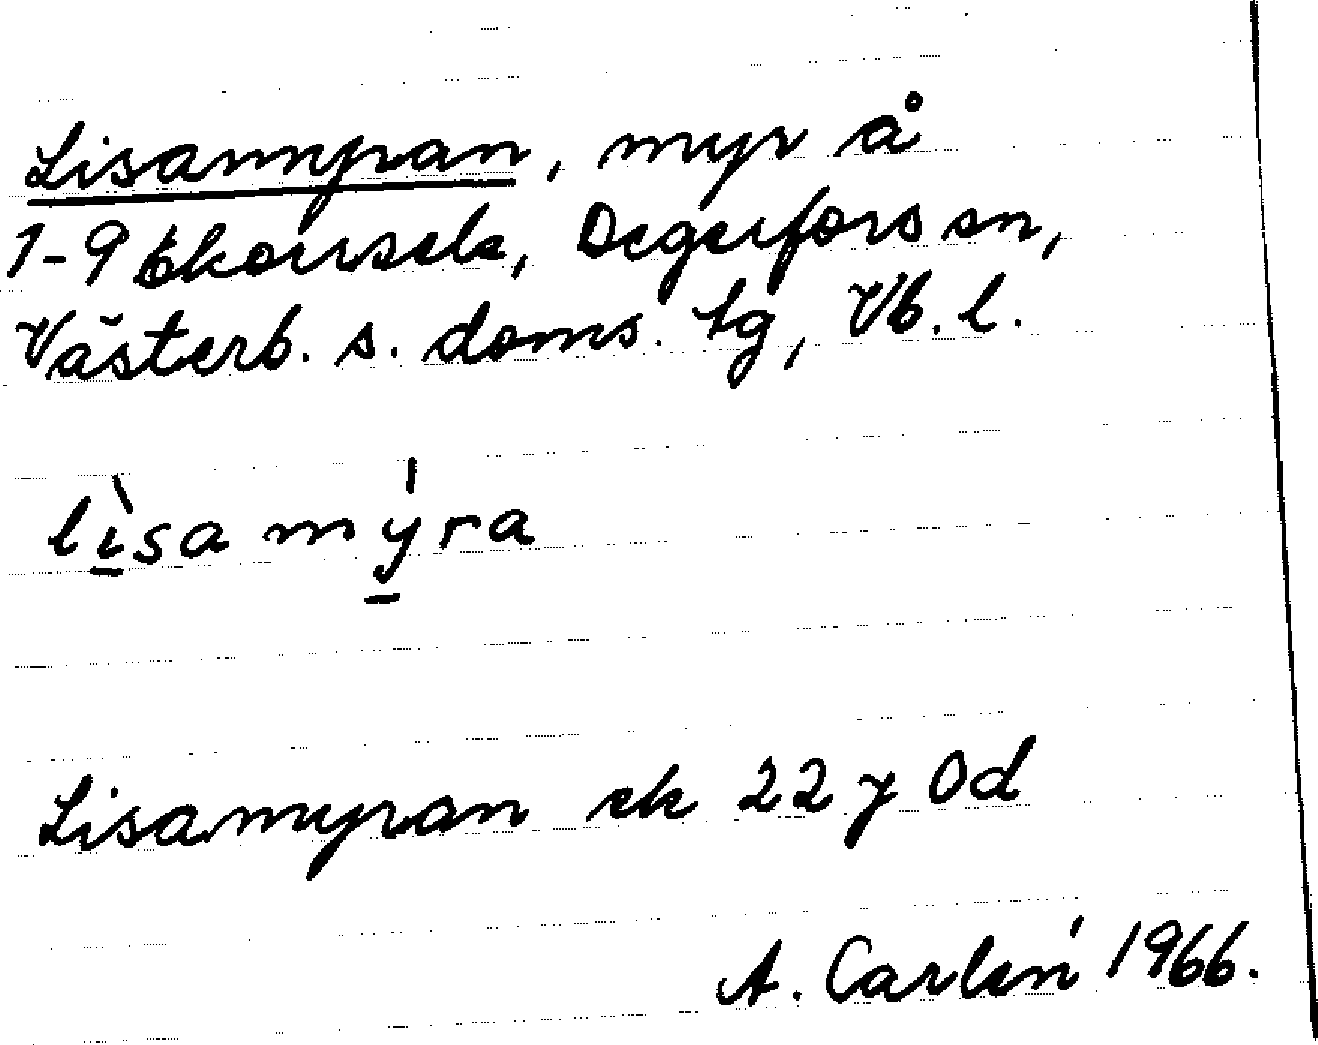 Lisamyran, myr å
1-9 Ekorrsele, Degerfors sn,
Västerb. s. doms. tg, Vb. l.
lìsa mýra
Lisamyran ek 22 y 0d
A. Carlén 1966.